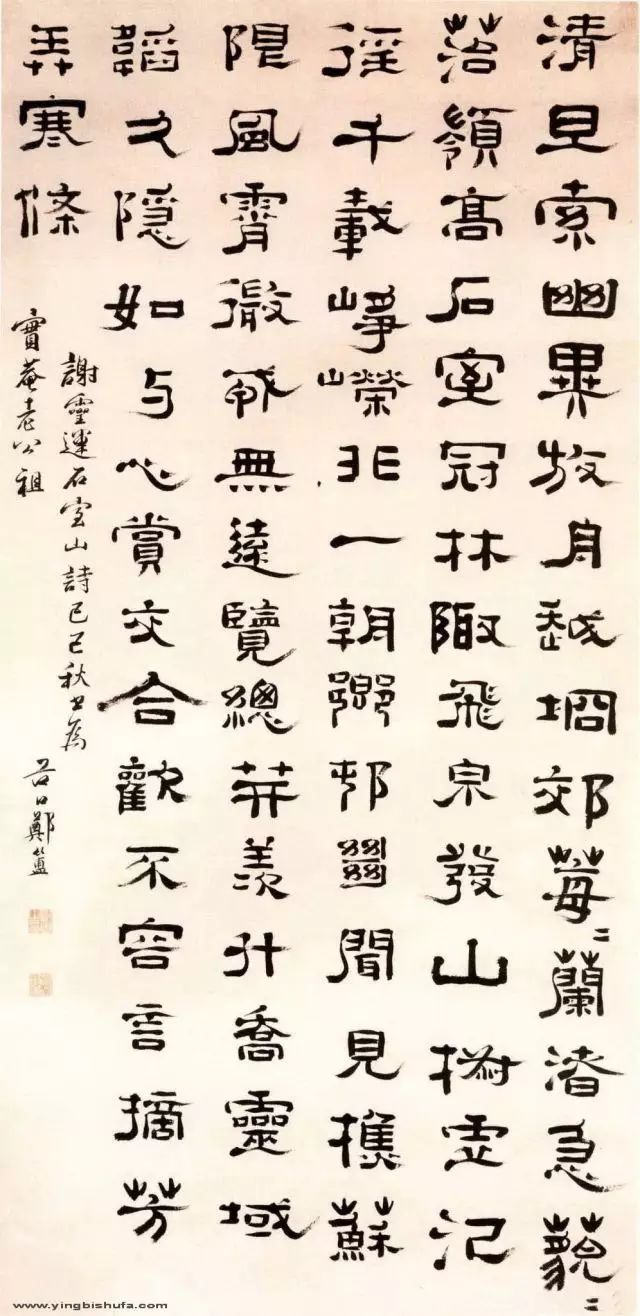 清旦索幽異放舟越坰郊莓〻蘭渚急藐〻
苔嶺高石室冠林陬飛泉發山椒虛泛
徑千載崢嶸非一朝鄉邨絕聞見樵蘇
限風霄微戎無遠覽總笄羨升喬靈域
韜久隱如与心賞交合歡不容言摘芳
弄寒條
謝靈運石室山詩己巳秋書為
實菴老公祖
谷口鄭簠
www.yingbishufa.com